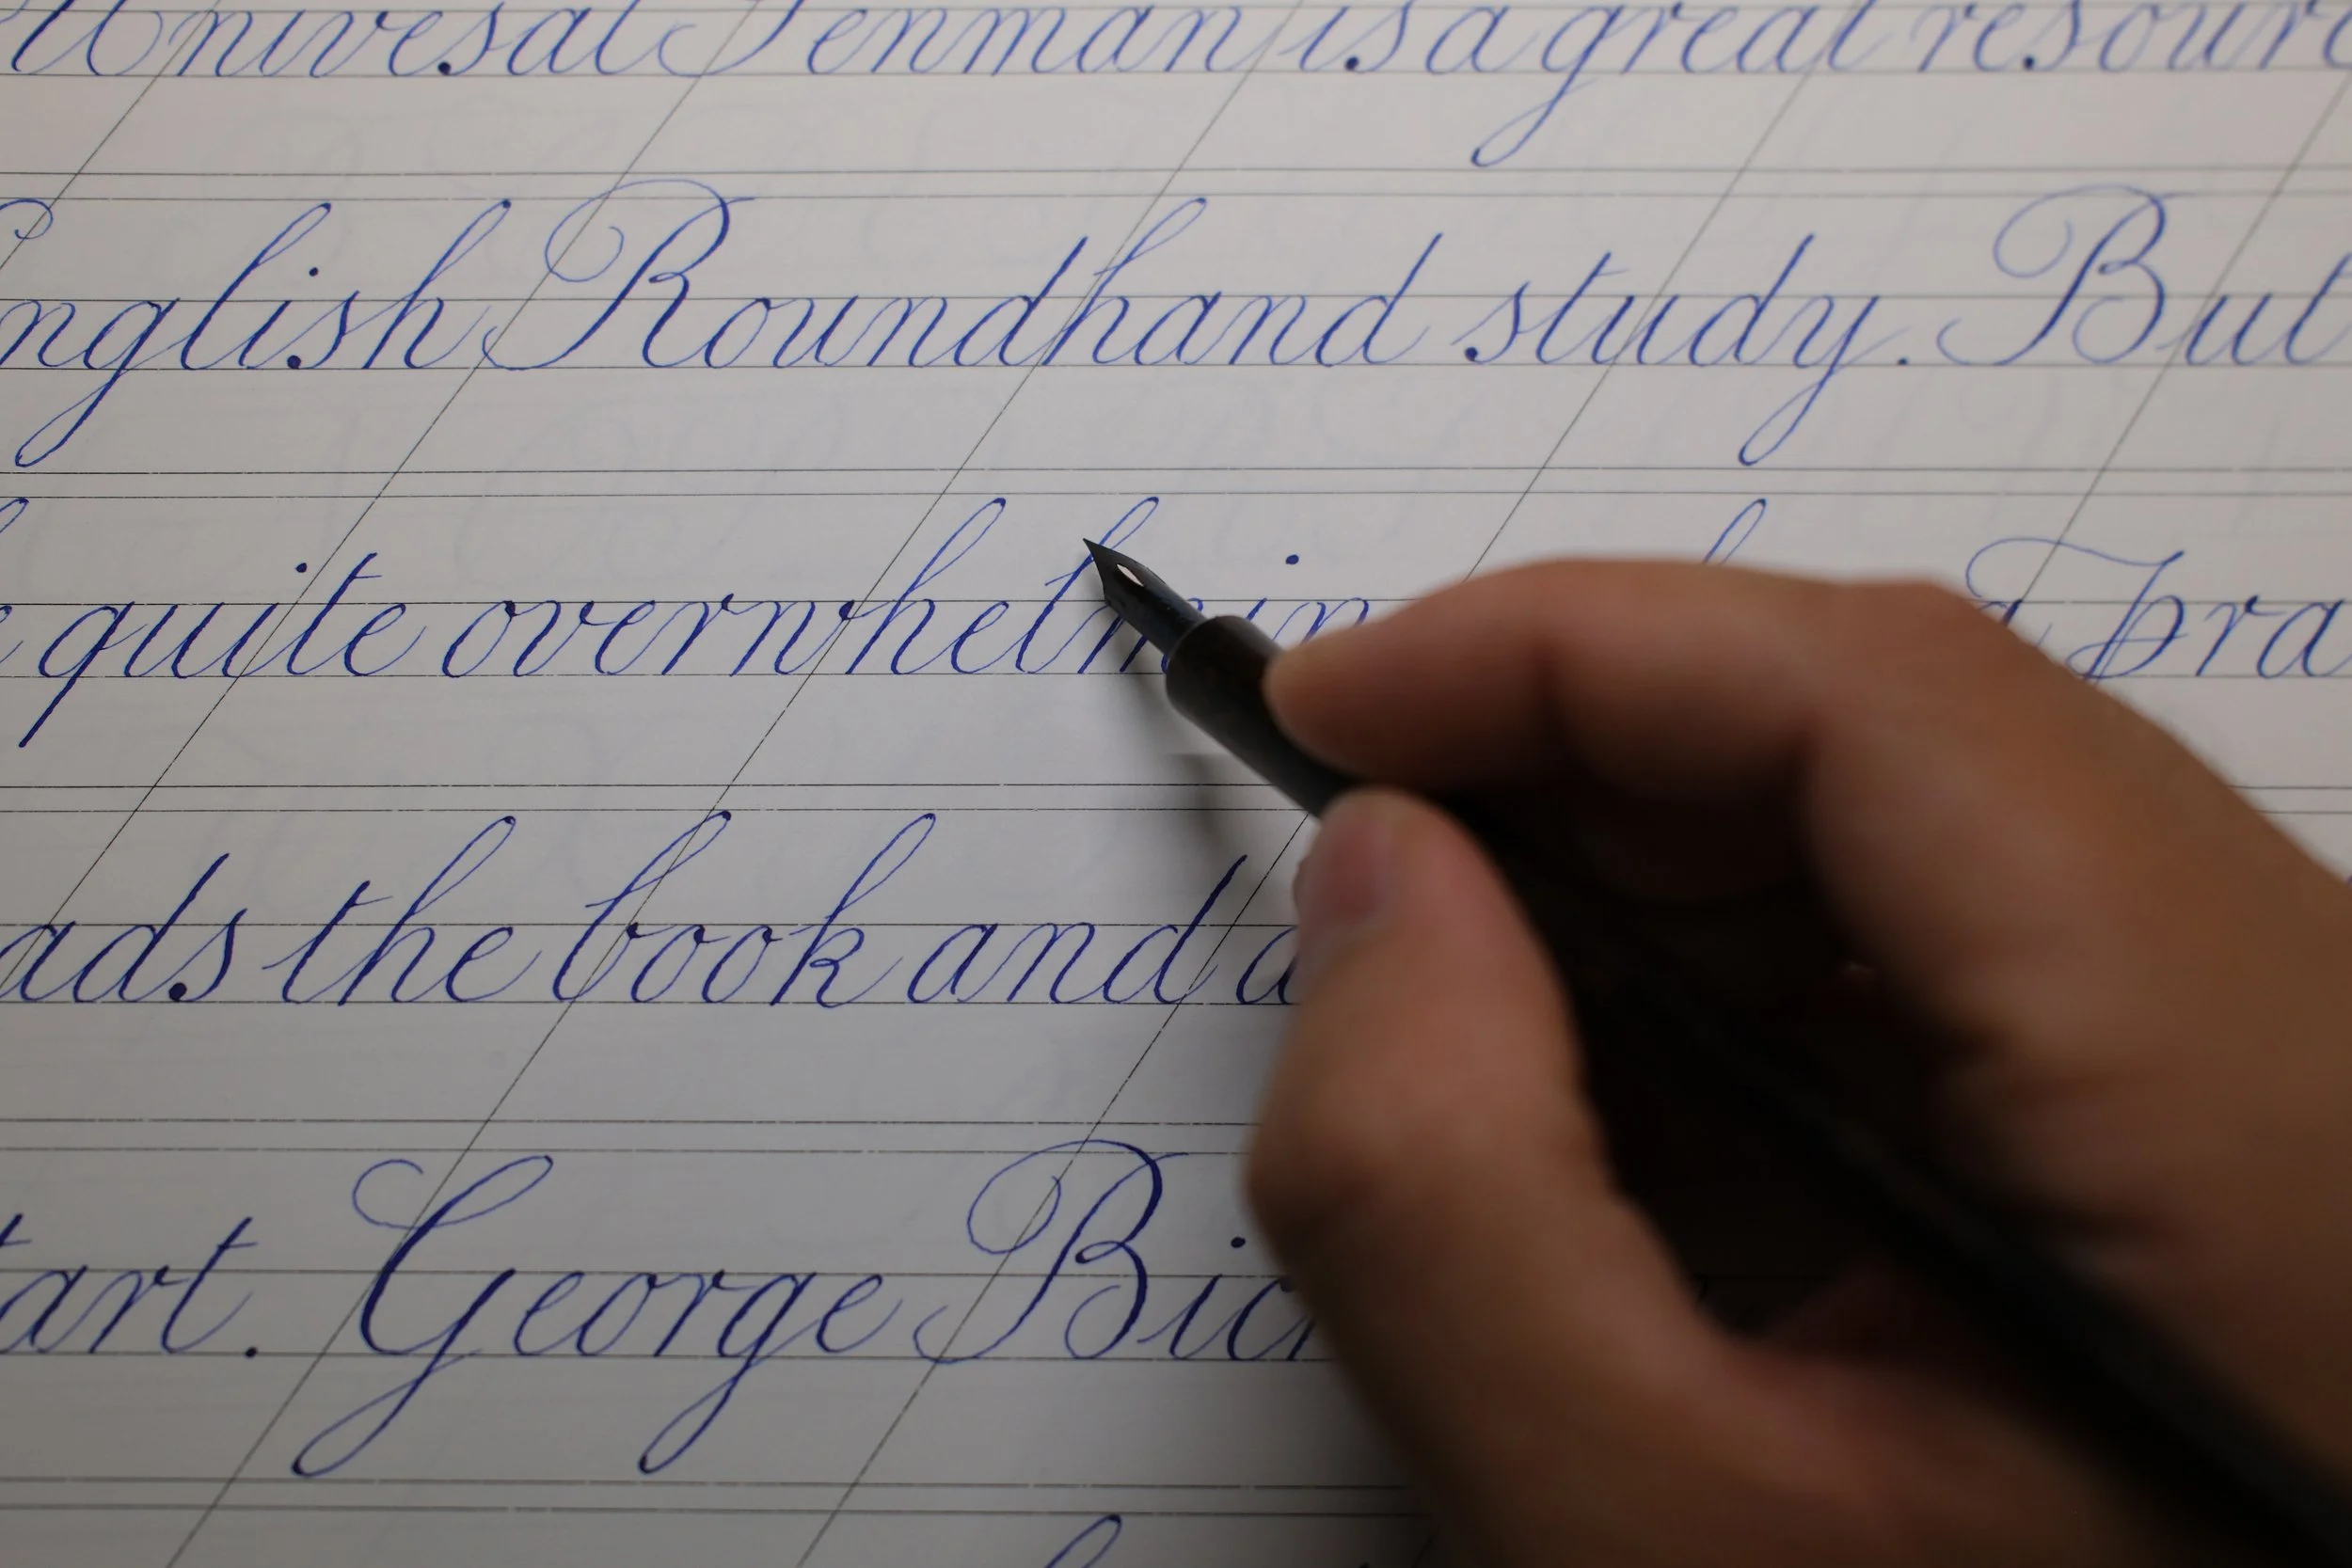 Univesal Penman is a great resourc
nglish Roundhand study. But
quite overwhelmin a pra
ads the book and a
tart. George Bic